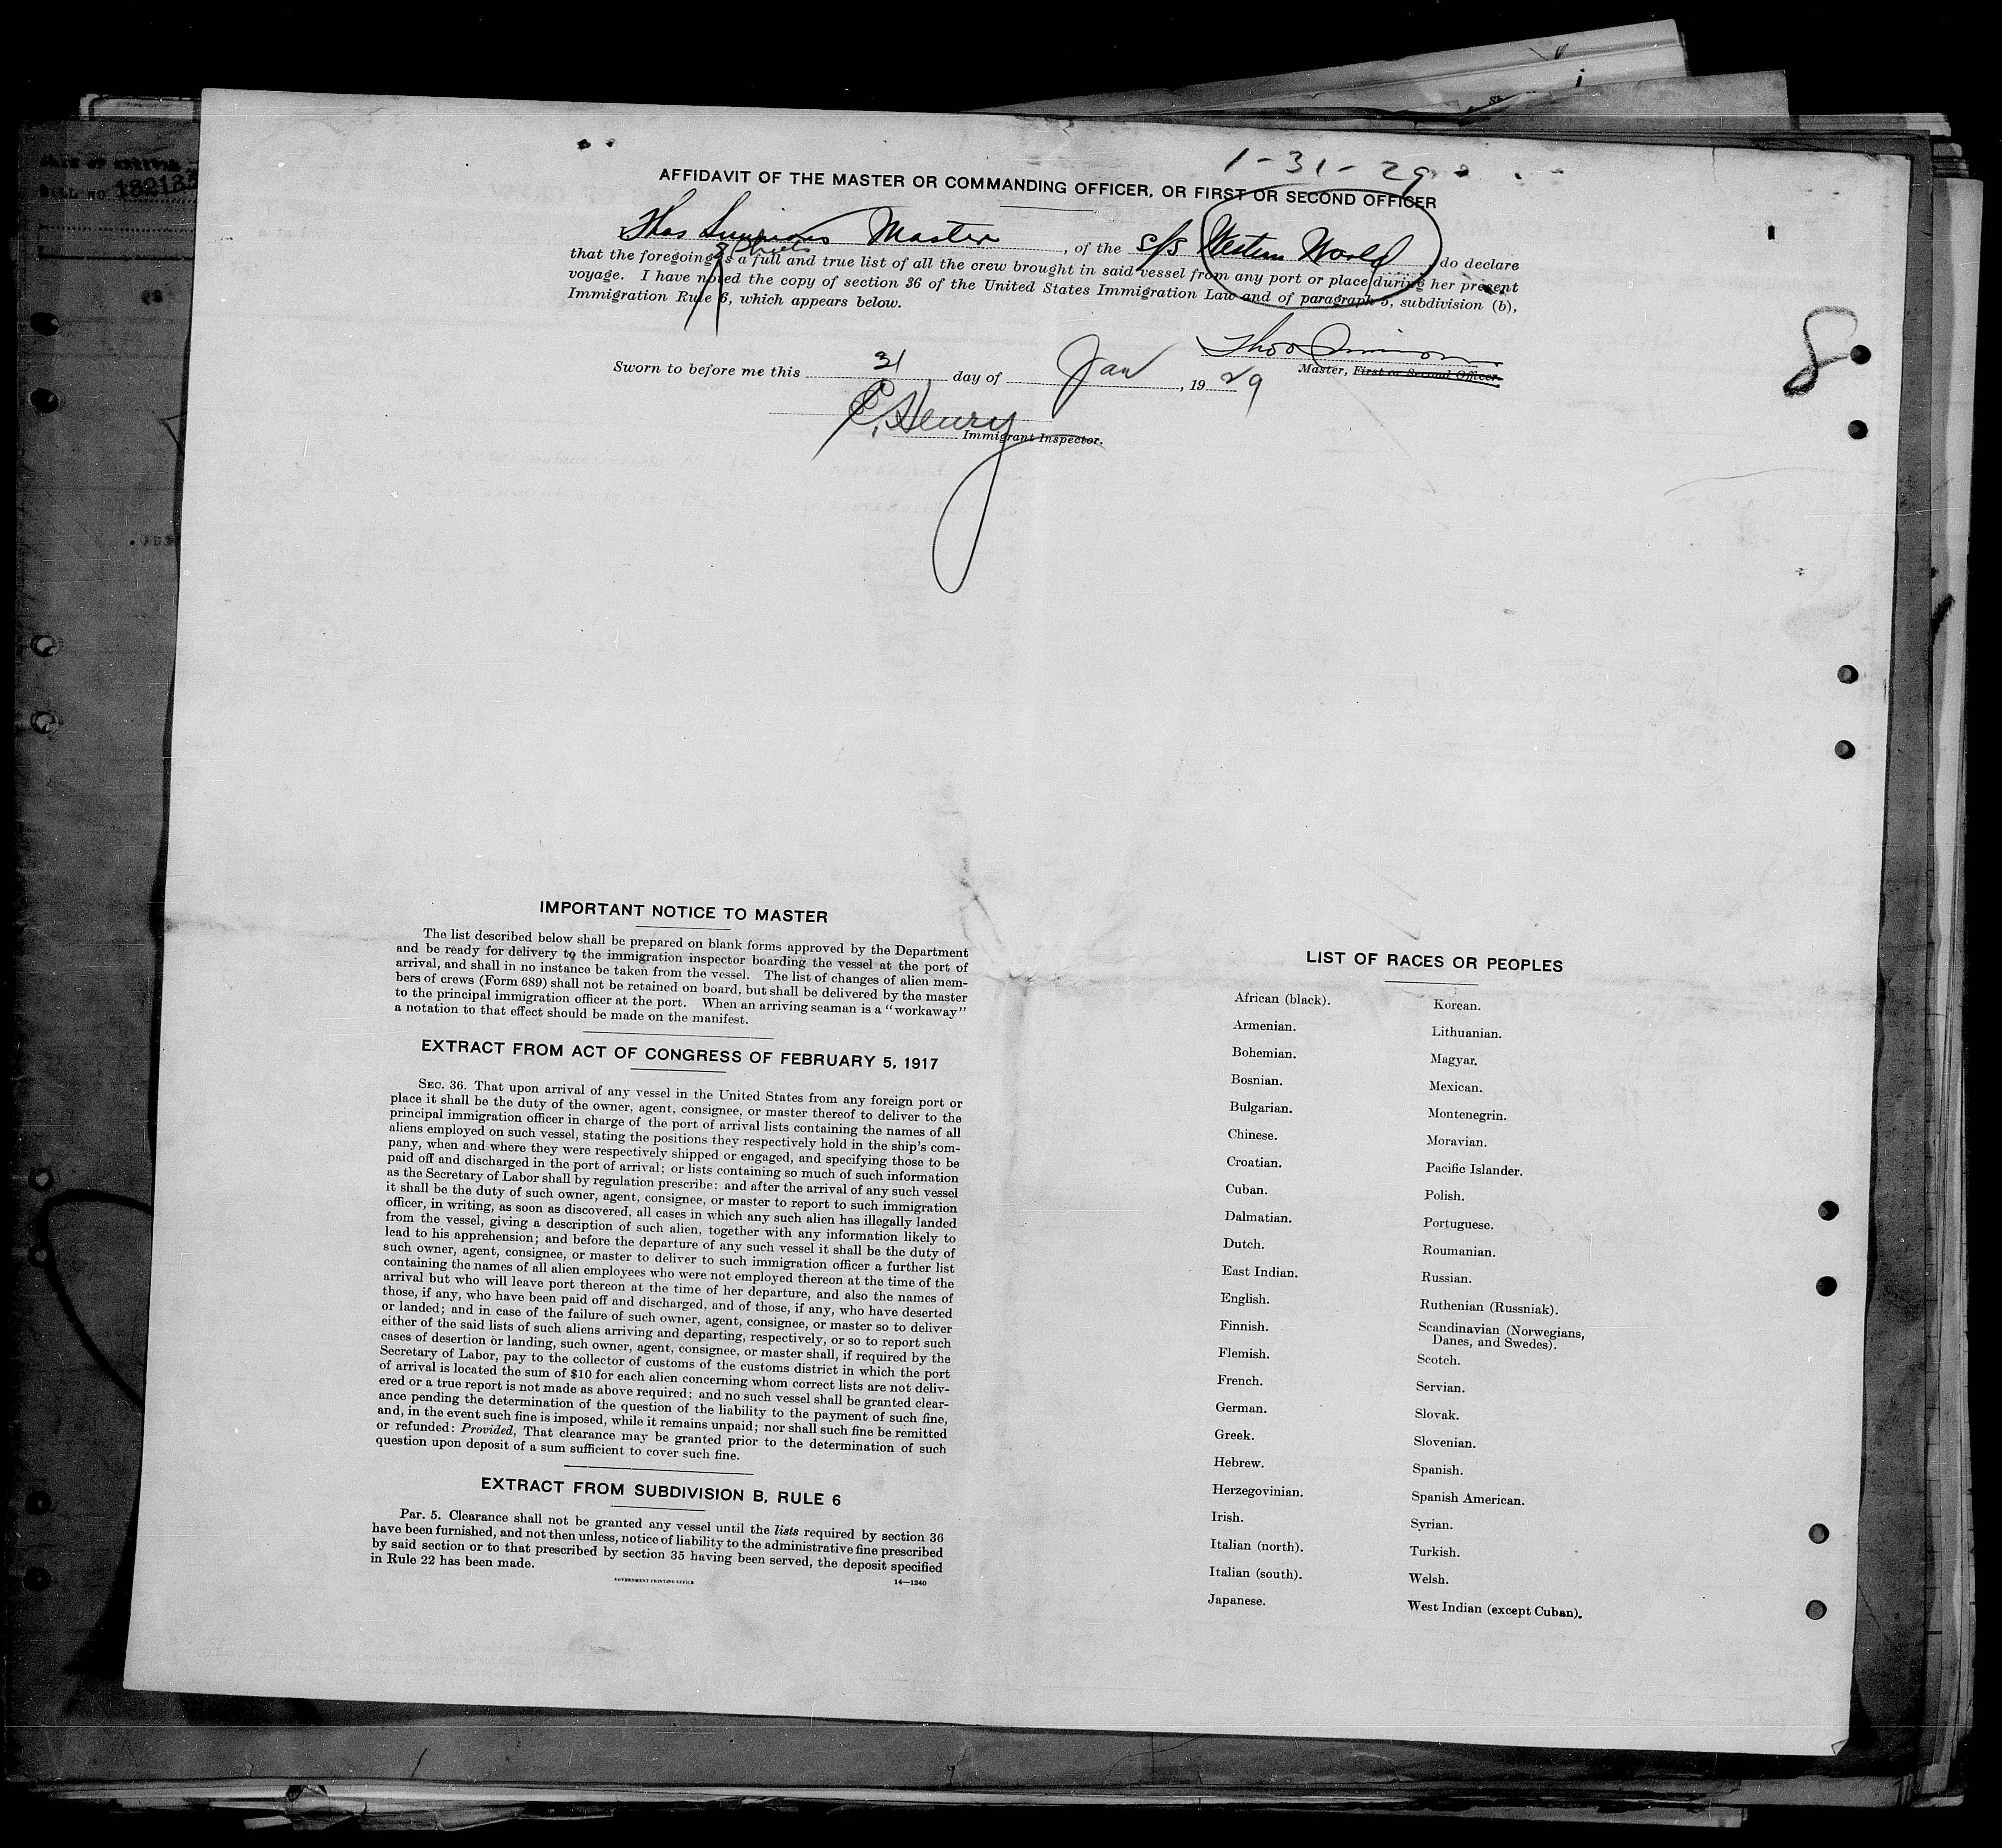 DATE OF ARRIVAL
BILL NO 132183
1-31-29
AFFIDAVIT OF THE MASTER OR COMMANDING OFFICER, OR FIRST OR SECOND OFFICER
Thos Simmons Master, of the S/S Western World, do declare
8 Sheets
that the foregoing is a full and true list of all the crew brought in said vessel from any port or place during her present
voyage. I have noted the copy of section 36 of the United States Immigration Law and of paragraph 5, subdivision (b),
Immigration Rule 6, which appears below.
8
Thos Simmons
Sworn to before me this 31 day of Jan, 1929
Master, First or Second Officer.
C. Henry
Immigrant Inspector.
IMPORTANT NOTICE TO MASTER
The list described below shall be prepared on blank forms approved by the Department
and be ready for delivery to the immigration inspector boarding the vessel at the port of
arrival, and shall in no instance be taken from the vessel. The list of changes of alien mem-
bers of crews (Form 689) shall not be retained on board, but shall be delivered by the master
to the principal immigration officer at the port. When an arriving seaman is a "workaway"
a notation to that effect should be made on the manifest.
EXTRACT FROM ACT OF CONGRESS OF FEBRUARY 5, 1917
SEC. 36. That upon arrival of any vessel in the United States from any foreign port or
place it shall be the duty of the owner, agent, consignee, or master thereof to deliver to the
principal immigration officer in charge of the port of arrival lists containing the names of all
aliens employed on such vessel, stating the positions they respectively hold in the ship's com-
pany, when and where they were respectively shipped or engaged, and specifying those to be
paid off and discharged in the port of arrival; or lists containing so much of such information
as the Secretary of Labor shall by regulation prescribe; and after the arrival of any such vessel
it shall be the duty of such owner, agent, consignee, or master to report to such immigration
officer, in writing, as soon as discovered, all cases in which any such alien has illegally landed
from the vessel, giving a description of such alien, together with any information likely to
lead to his apprehension; and before the departure of any such vessel it shall be the duty of
such owner, agent, consignee, or master to deliver to such immigration officer a further list
containing the names of all alien employees who were not employed thereon at the time of the
arrival but who will leave port thereon at the time of her departure, and also the names of
those, if any, who have been paid off and discharged, and of those, if any, who have deserted
or landed; and in case of the failure of such owner, agent, consignee, or master so to deliver
either of the said lists of such aliens arriving and departing, respectively, or so to report such
cases of desertion or landing, such owner, agent, consignee, or master shall, if required by the
Secretary of Labor, pay to the collector of customs of the customs district in which the port
of arrival is located the sum of $10 for each alien concerning whom correct lists are not deliv-
ered or a true report is not made as above required; and no such vessel shall be granted clear-
ance pending the determination of the question of the liability to the payment of such fine,
and, in the event such fine is imposed, while it remains unpaid; nor shall such fine be remitted
or refunded: Provided, That clearance may be granted prior to the determination of such
question upon deposit of a sum sufficient to cover such fine.
EXTRACT FROM SUBDIVISION B, RULE 6
Par. 5. Clearance shall not be granted any vessel until the lists required by section 36
have been furnished, and not then unless, notice of liability to the administrative fine prescribed
by said section or to that prescribed by section 35 having been served, the deposit specified
in Rule 22 has been made.
GOVERNMENT PRINTING OFFICE 14—1240
LIST OF RACES OR PEOPLES
African (black).
Armenian.
Bohemian.
Bosnian.
Bulgarian.
Chinese.
Croatian.
Cuban.
Dalmatian.
Dutch.
East Indian.
English.
Finnish.
Flemish.
French.
German.
Greek.
Hebrew.
Herzegovinian.
Irish.
Italian (north).
Italian (south).
Japanese.
Korean.
Lithuanian.
Magyar.
Mexican.
Montenegrin.
Moravian.
Pacific Islander.
Polish.
Portuguese.
Roumanian.
Russian.
Ruthenian (Russniak).
Scandinavian (Norwegians,
Danes, and Swedes).
Scotch.
Servian.
Slovak.
Slovenian.
Spanish.
Spanish American.
Syrian.
Turkish.
Welsh.
West Indian (except Cuban).